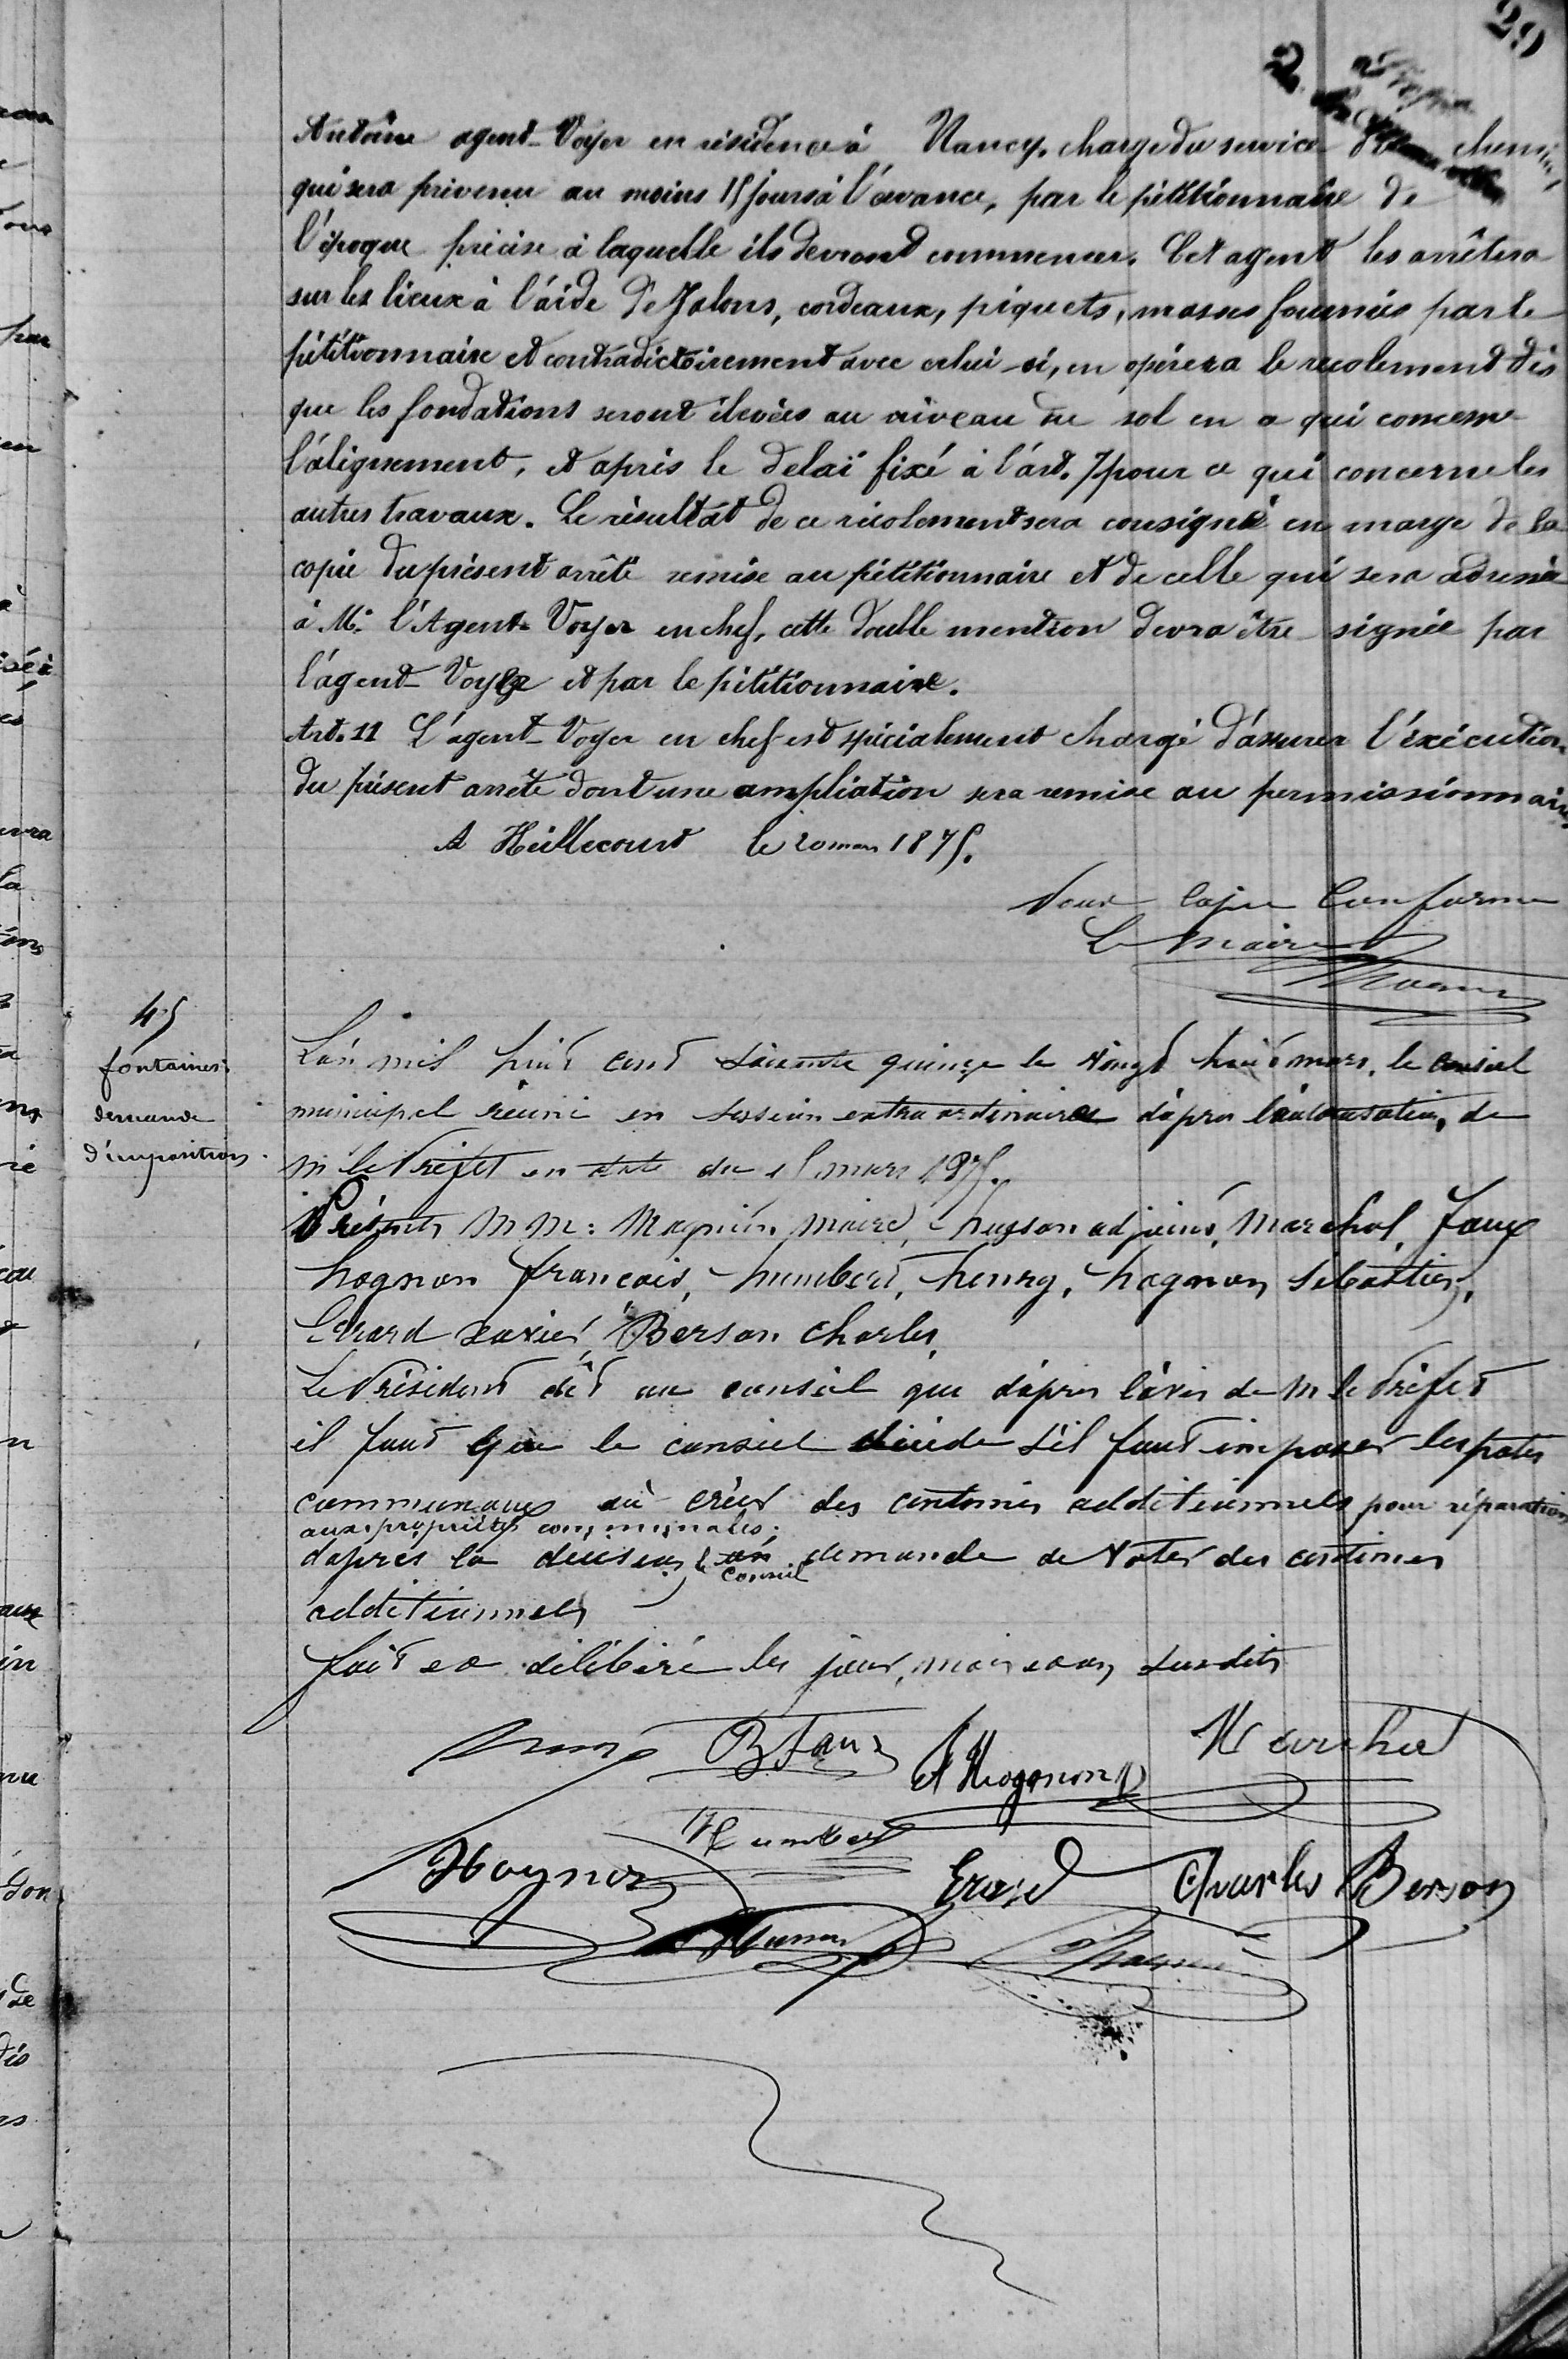 29
Antoine agent-Voyer en résidence à Nancy, chargé du service chemins
qui sera prévenu au moins 15 jours à l'avance, par le pétitionnaire de
l'époque précise à laquelle ils devront commencer. Cet agent les arrêtera
sur les lieux à l'aide de Jalons, cordeaux, piquets, masses fournies par le
pétitionnaire et contradictoirement avec celui-ci, en opérera le recolement dès
que les fondations seront élevées au niveau du sol en ce qui concerne
l'alignement, et après le délai fixé à l'art. 7 pour ce qui concerne les
autres travaux. Le résultat de ce récolement sera consigné en marge de la
copie du présent arrêté remise au pétitionnaire et de celle qui sera adressée
à Mr l'Agent-Voyer en chef, cette double mention devra être signée par
l'agent-Voyer et par le pétitionnaire.
Art. 11 L'agent-Voyer en chef est spécialement chargé d'assurer l'éxécution
du présent arrêté dont une ampliation sera remise au permissionnaire
A Heillecourt le 20 mars 1875.
Pour Copie Conforme
Le Maire
45
fontaines
demande
d'imposition
L'an mil huit cent soixante quinze le vingt huit mars, le conseil
municipal réuni en session extraordinaire d'après l'autorisation de
m le Préfet en date du 15 mars 1875.
Présents MM: Magnien Maire, husson adjoint, Marchal, Faux
hognon françois, humbert, henry, hognon sébastien,
Erard xavier, Berson charles,
Le Président dit au conseil que d'après l'avis de M le Préfet
il faut que le conseil décide s'il faut imposer les pates
communaux où créer des centimes additionnels pour réparation
aux propriétés communales;
d'après la décision le conseil demande de voter des centimes
additionnels
fait en délibéré les jour, mois et an susdits
B Faux
Hognon
Marchal
Humbert
Hognon
Erard
Charles Berson
Husson
Magnien